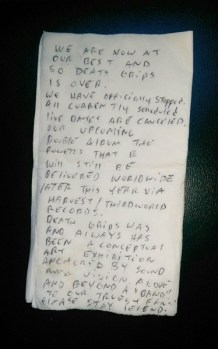 WE ARE NOW AT
OUR BEST AND
SO DEATH GRIPS
IS OVER.
WE HAVE OFFICIALLY STOPPED.
ALL CURRENTLY SCHEDULED
LIVE DATES ARE CANCELED.
OUR UPCOMING
DOUBLE ALBUM "THE
POWERS THAT B"
WILL STILL BE
DELIVERED WORLDWIDE
LATER THIS YEAR VIA
HARVEST/THIRDWORLDS
RECORDS.
DEATH GRIPS WAS
AND ALWAYS HAS
BEEN A CONCEPTUAL
ART EXHIBITION
ANCHORED BY SOUND
AND VISION. ABOVE
AND BEYOND A "BAND".
TO OUR TRUEST FANS,
PLEASE STAY LEGEND.